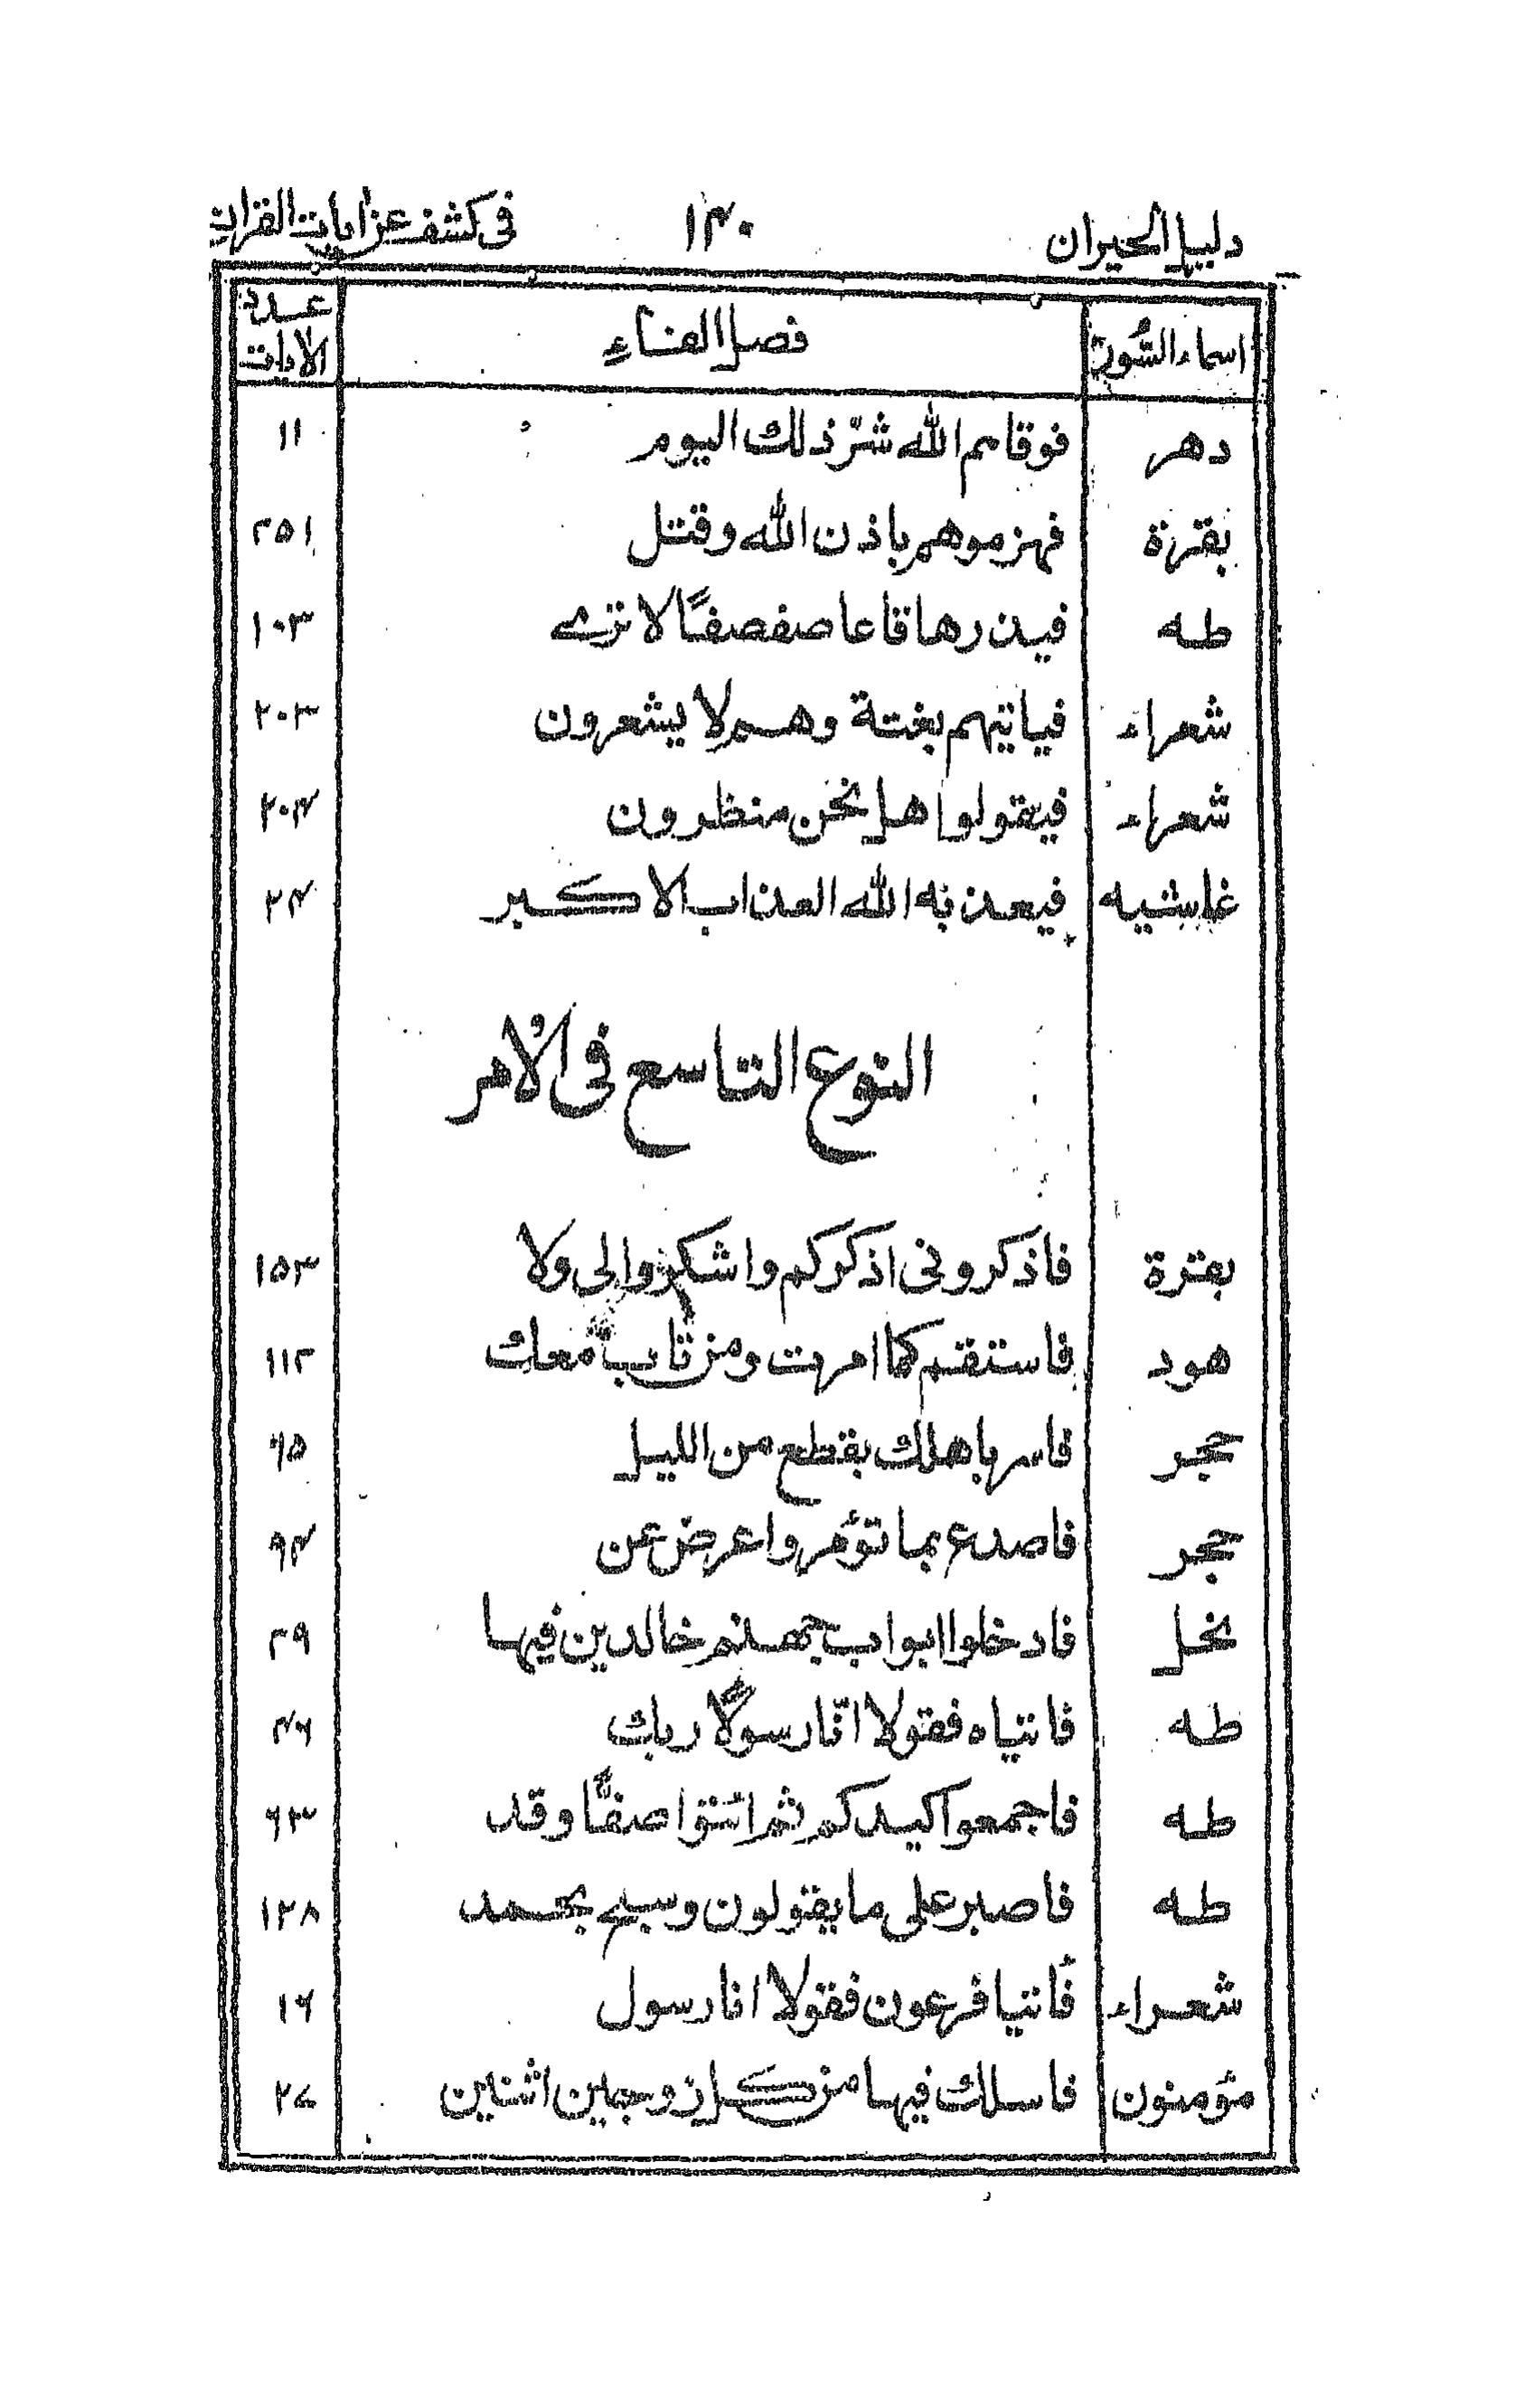 دليل الحيران ١٤٠ فى كشف عن ايات القران
اسماء السُّور فصل الفاء عدد الايات
دهر فوقاهم الله شرّ ذلك اليوم ١١
بقرة فهزموهم باذن الله وقتل ٢٥١
طه فيذرها قاعا صفصفًا لا ترى ١٠٣
شعراء فياتيهم بغتة وهم لا يشعرون ٢٠٣
شعراء فيقولوا هل نحن منظرون ٢٠٤
غاشيه فيعذبه الله العذاب الاكبر ٢٤
النوع التاسع فى الأمر
بقرة فاذكرونى اذكركم واشكروا لى ولا ١٥٣
هود فاستقم كما امرت ومن تاب معك ١١٢
حجر فاسر باهلك بقطع من الليل ٦٥
حجر فاصدع بما تؤمر واعرض عن ٩٤
نحل فادخلوا ابواب جهنم خالدين فيها ٢٩
طه فأتياه فقولا انّا رسولا ربك ٤٦
طه فاجمعوا كيدكم ثم ائتوا صفًّا وقد ٦٣
طه فاصبر على ما يقولون وسبح بحمد ١٢٨
شعراء فأتيا فرعون فقولا انا رسول ١٦
مؤمنون فاسلك فيها من كل زوجين اثنين ٢٧